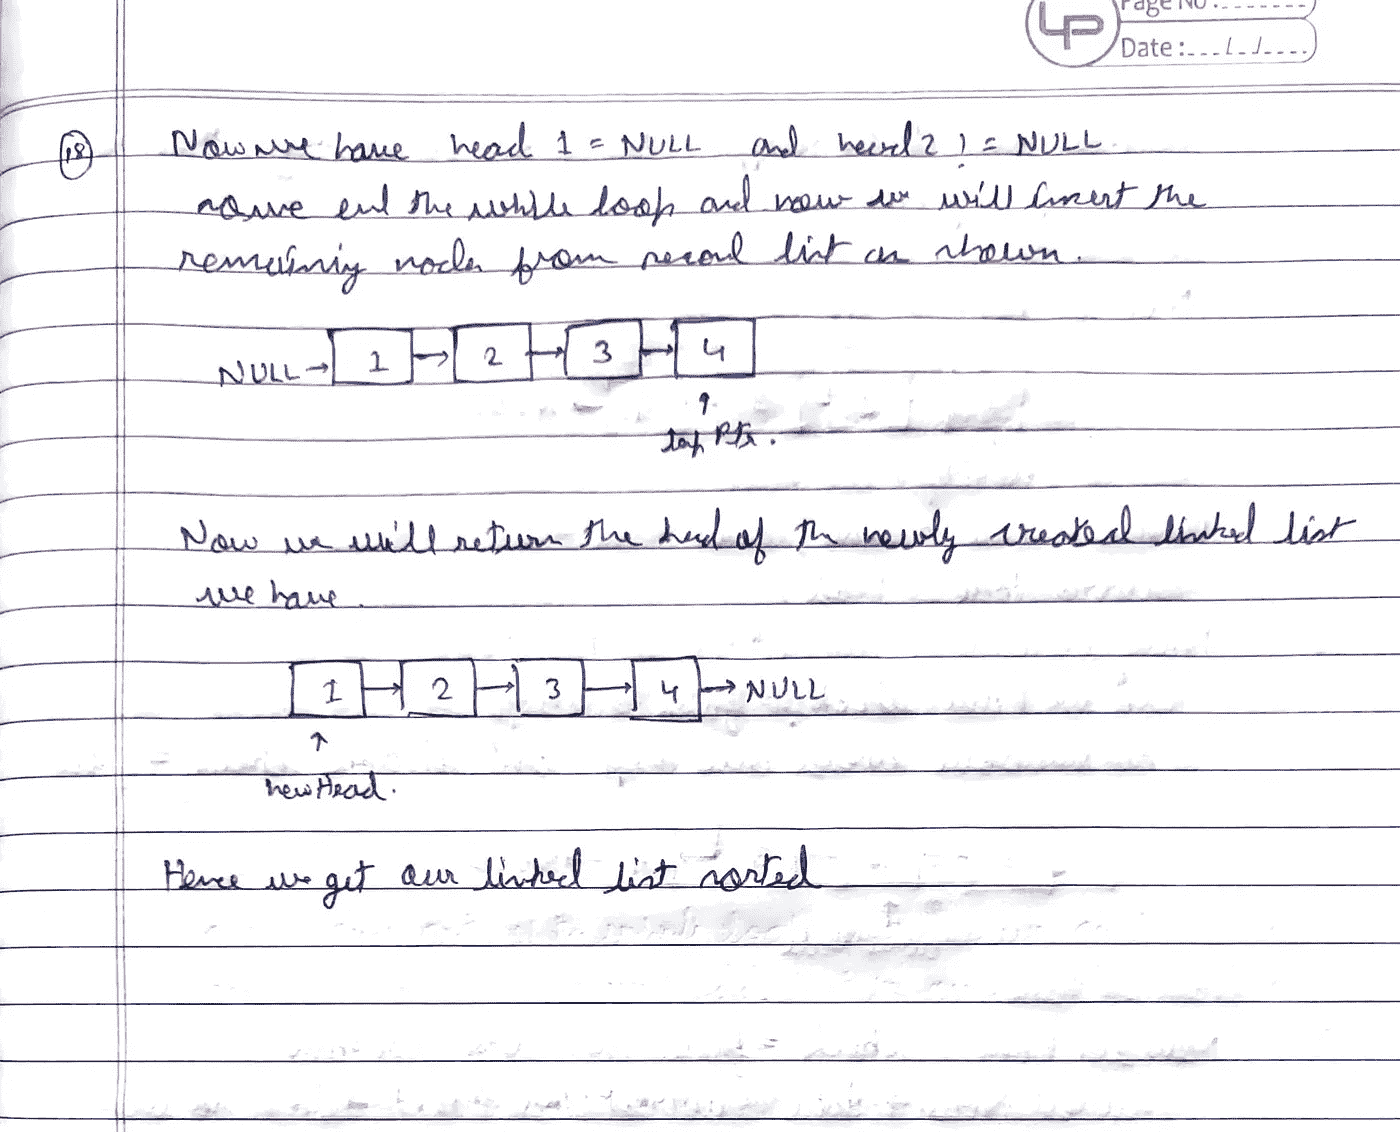 Page No :
Date :
18 Now we have head 1 = NULL and head 2 != NULL
so we end the while loop and now we will insert the
remaining nodes from second list as shown.
NULL → 1 → 2 → 3 → 4
↑
Ptr.
Now we will return the head of the newly created linked list
we have.
1 → 2 → 3 → 4 → NULL
↑
newHead.
Hence we get our linked list sorted